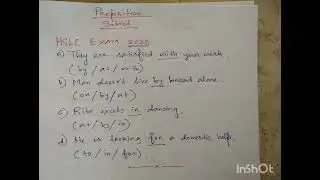 Preposition
Solved
HSLC Exam 2020
a) They are satisfied with your work
(by / as / with)
b) Man doesn't live by bread alone.
(on / by / at)
c) Ritu excels in dancing.
(at / by / in)
d) He is looking for a domestic help.
(to / in / for).
InShOt